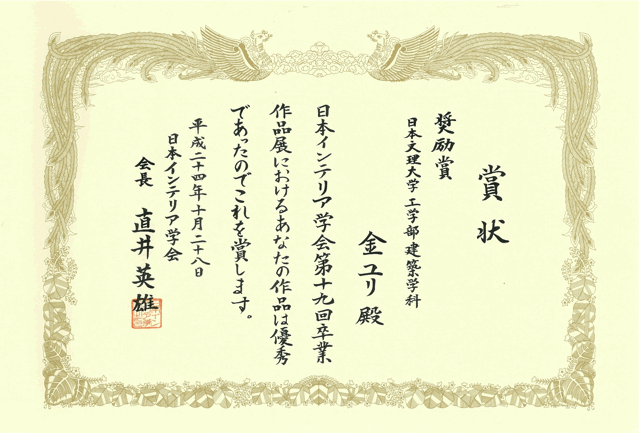 賞状
奨励賞
日本文理大学 工学部 建築学科
金ユリ 殿
日本インテリア学会第十九回卒業
作品展におけるあなたの作品は優秀
であったのでこれを賞します。
平成二十四年十月二十八日
日本インテリア学会
会長 直井英雄